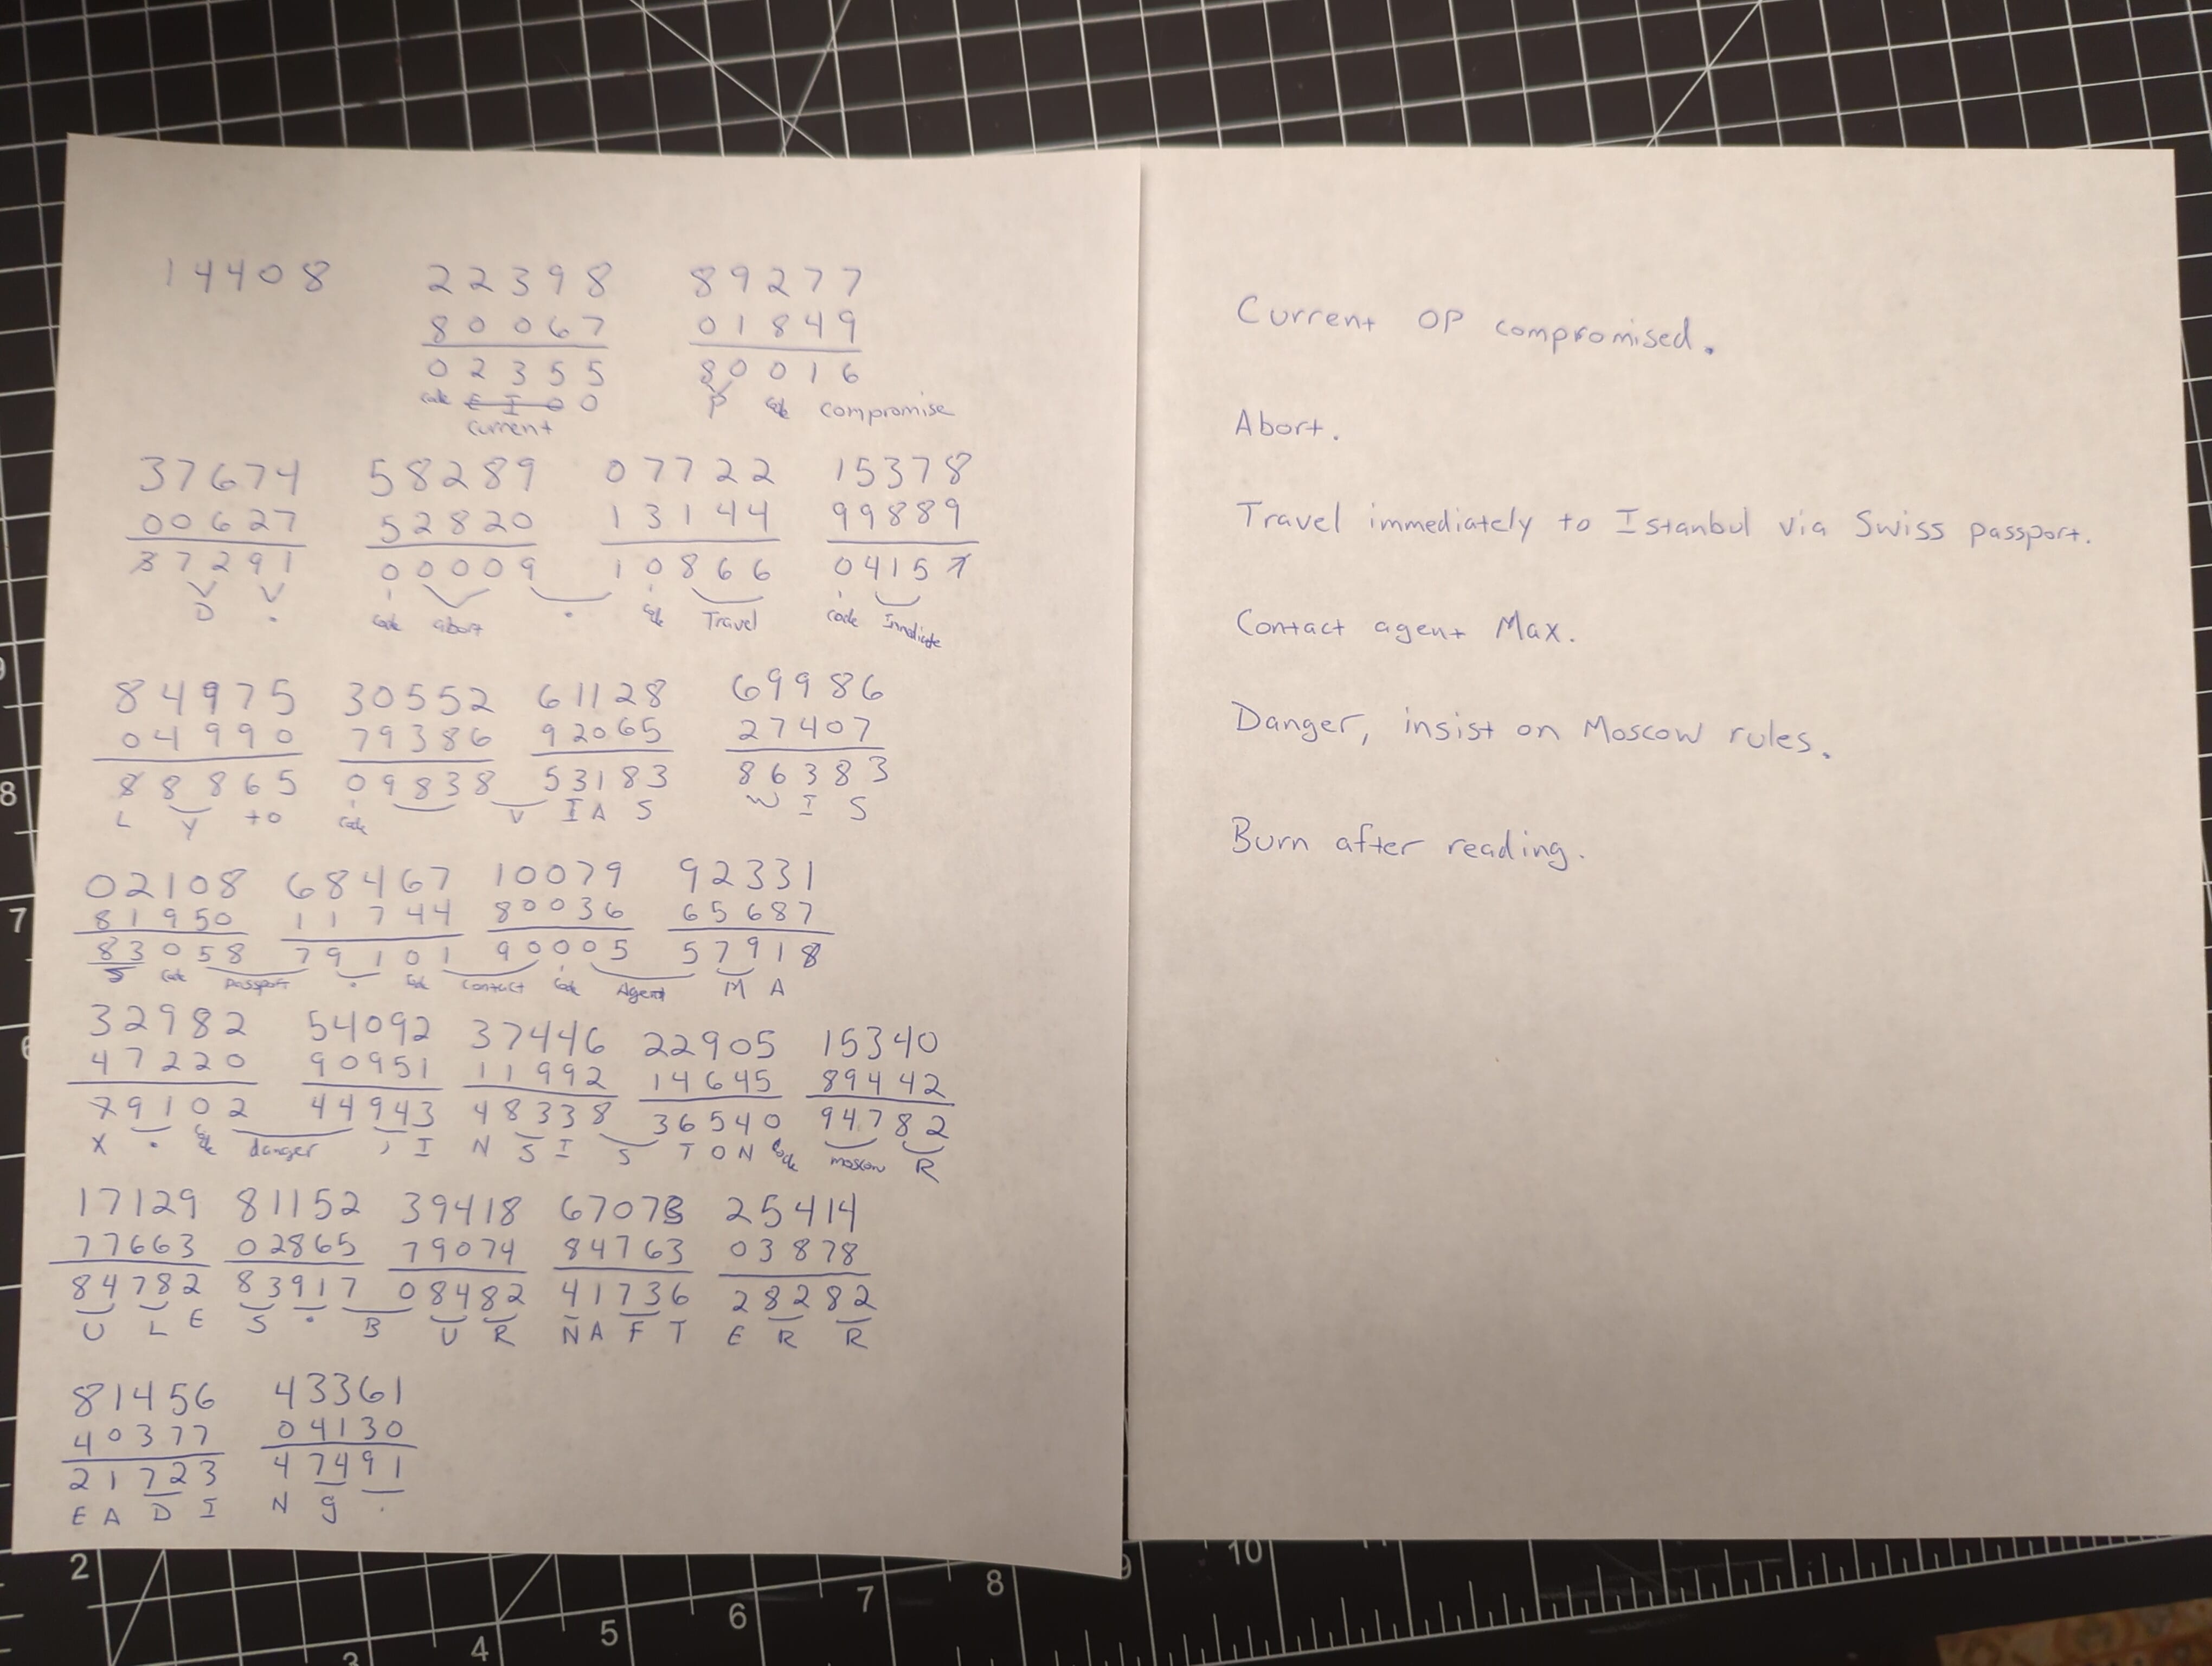 14408 22398 89277
80067 01849
02355 80016
code E I O O P code compromise
current
37674 58289 07722 15378
00627 52820 13144 99889
37291 00009 10866 04157
D . code abort . code Travel code Immediate
84975 30552 61128 69986
04990 79386 92065 27407
88865 09838 53183 86383
L Y to code V I A S W I S
02108 68467 10079 92331
81950 11744 80036 65687
83058 79101 90005 57918
S code passport . code contact code Agent M A
32982 54092 37446 22905 15340
47220 90951 11992 14645 89442
79102 44943 48338 36540 94782
X . code danger , I N S I S T O N code moscow R
17129 81152 39418 67073 25414
77663 02865 79074 84763 03878
84782 83917 08482 41736 28282
U L E S . B U R N A F T E R R
81456 43361
40377 04130
21723 47491
E A D I N g .
Current OP compromised.
Abort.
Travel immediately to Istanbul via Swiss passport.
Contact agent Max.
Danger, insist on Moscow rules.
Burn after reading.
9
8
7
6
2 3 4 5 6 7 8 9 10